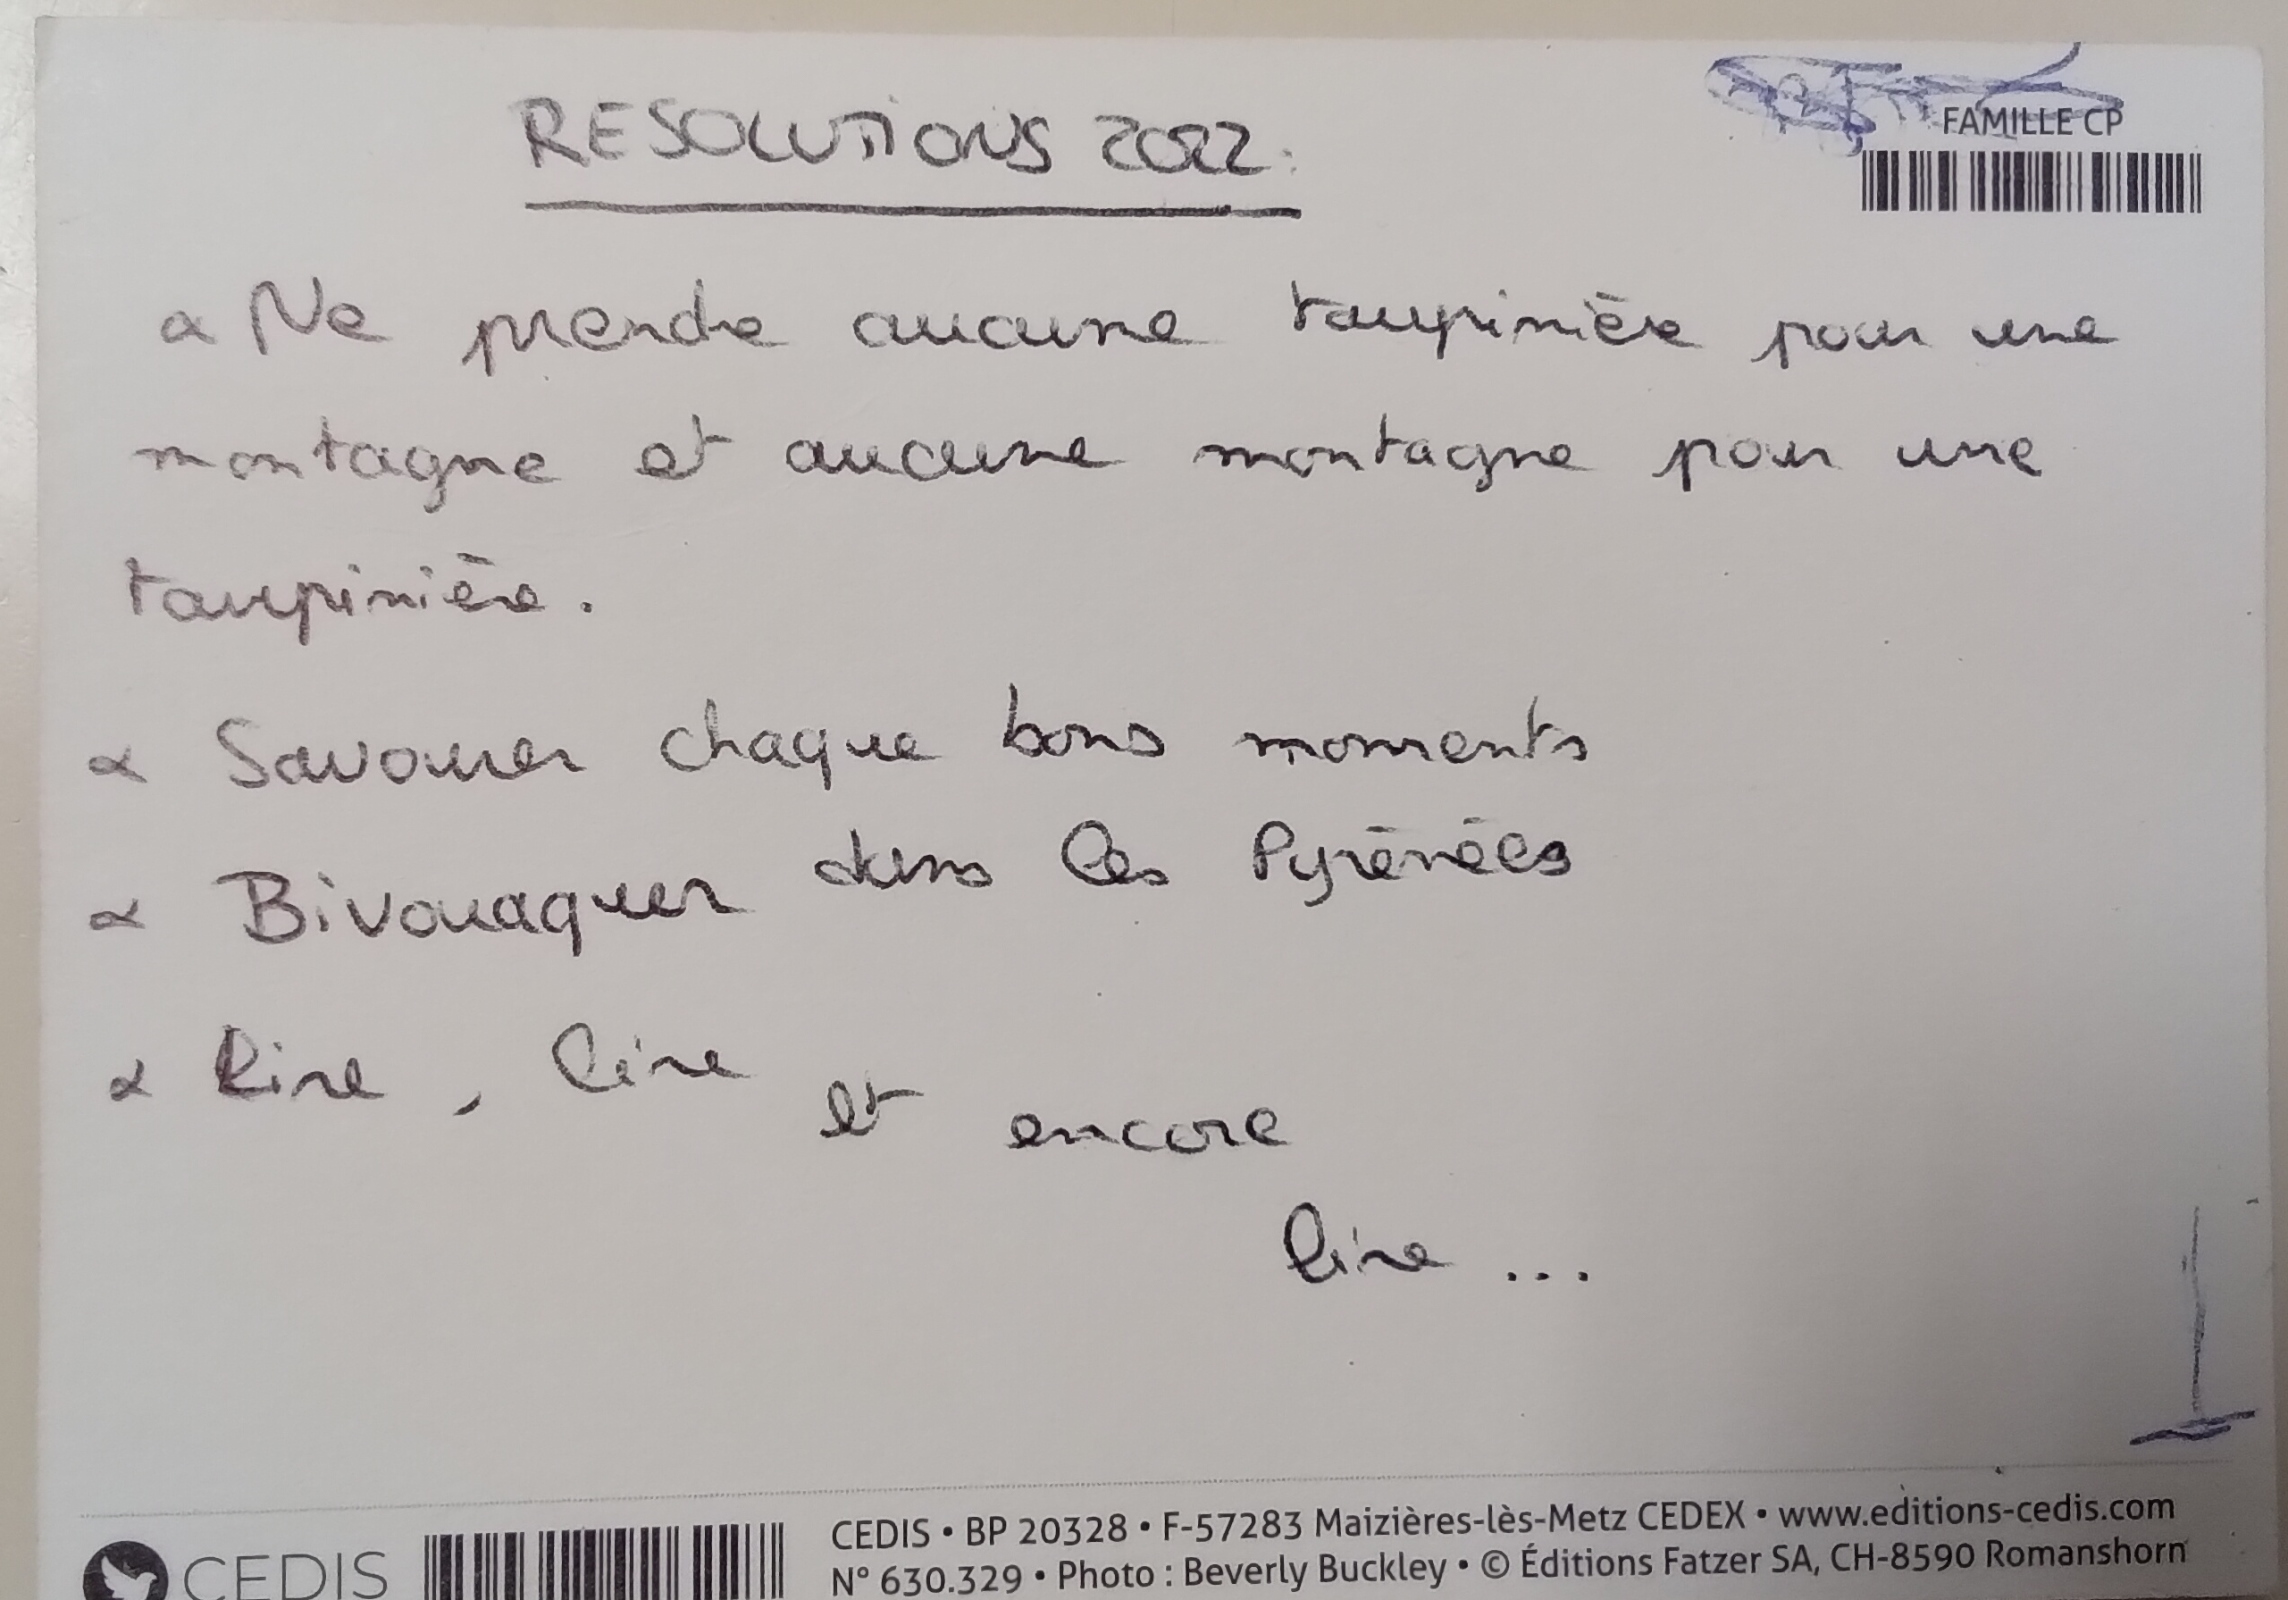 RESOLUTIONS 2022.
FAMILLE CP
α Ne prendre aucune taupinière pour une
montagne et aucune montagne pour une
taupinière.
α Savourer chaque bons moments
α Bivouaquer dans les Pyrénées
α Lire, lire et encore
lire ...
CEDIS
CEDIS • BP 20328 • F-57283 Maizières-lès-Metz CEDEX • www.editions-cedis.com
N° 630.329 • Photo : Beverly Buckley • © Éditions Fatzer SA, CH-8590 Romanshorn